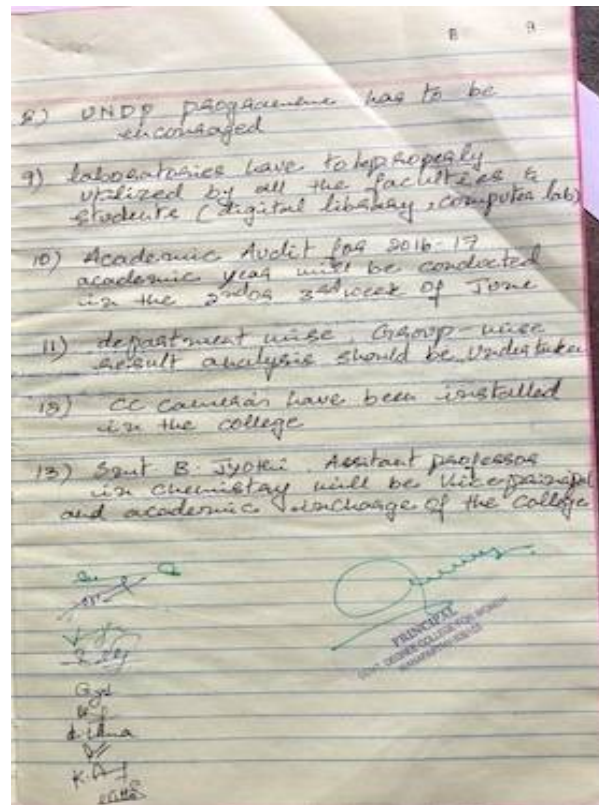 8) UNDP programme has to be
encouraged
9) laboratories have to be properly
utilized by all the faculties &
students (digital library, computer lab)
10) Academic Audit for 2016-17
academic year will be conducted
in the 2nd or 3rd week of June
11) department wise, Group-wise
result analysis should be Undertaken
12) CC cameras have been installed
in the college
13) Smt B. Jyothi Assitant professor
in chemistry will be Vice principal
and academic incharge of the college
PRINCIPAL
GOVT. DEGREE COLLEGE FOR WOMEN
K.